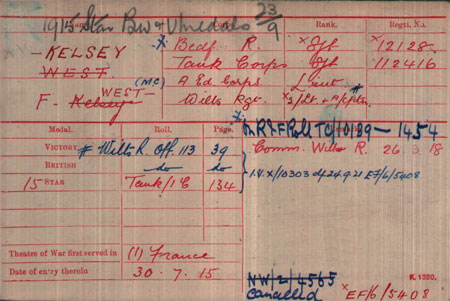 1915 Star BW & V medals 23/9
Name. Corps. Rank. Regtl. No.
- KELSEY * Bedf. R. * Sjt 12128.
WEST. Tank Corps Sjt 112416
(M.C) A. Ed. Corps Lieut #
F. - Kelsey WEST - Wilts Rgt. * 2/Lt. + A/Capt.
Medal. Roll. Page.
1454
VICTORY # Wilts R. Off. 113 39 Comm. Wilts R. 26. 3. 18
BRITISH do do
15 STAR Tank/1 C 134
EF/6/5408
Theatre of War first served in (1) France
Date of entry therein 30. 7. 15 K. 1380.
NW/2/4565
Cancelled * EF/6/5408